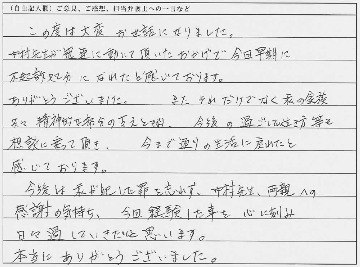 (自由記入欄) ご意見、ご感想、担当弁護士への一言など
この度は大変 お世話になりました。
中村先生が迅速に動いて頂いたおかげで 今回早期に
不起訴処分 になれたと感じております。
ありがとうございました。 また それだけでなく 私の家族
共々 精神的な部分の支えと 今後 の過ごして行き方 等も
相談に乗って頂き、 今まで通りの生活に戻れたと
感じております。
今後は 私が犯した罪を忘れず、中村先生、両親への
感謝の気持ち、今回経験した事を 心に刻み
日々過していきたいと思います。
本当に ありがとうございました。